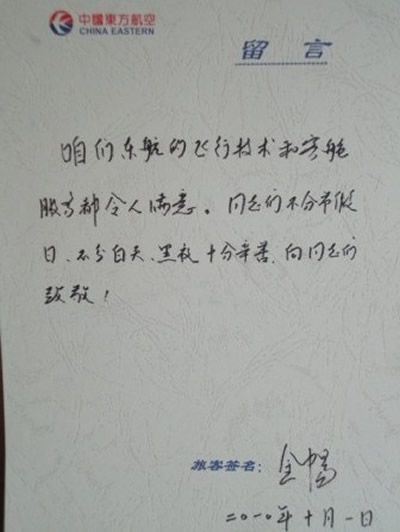 中國東方航空
CHINA EASTERN
留言
咱们东航的飞行技术和客舱
服务都令人满意。同志们不分节假
日、不分白天、黑夜十分辛苦，向同志们
致敬！
旅客签名：金畅
二〇一〇年十月一日